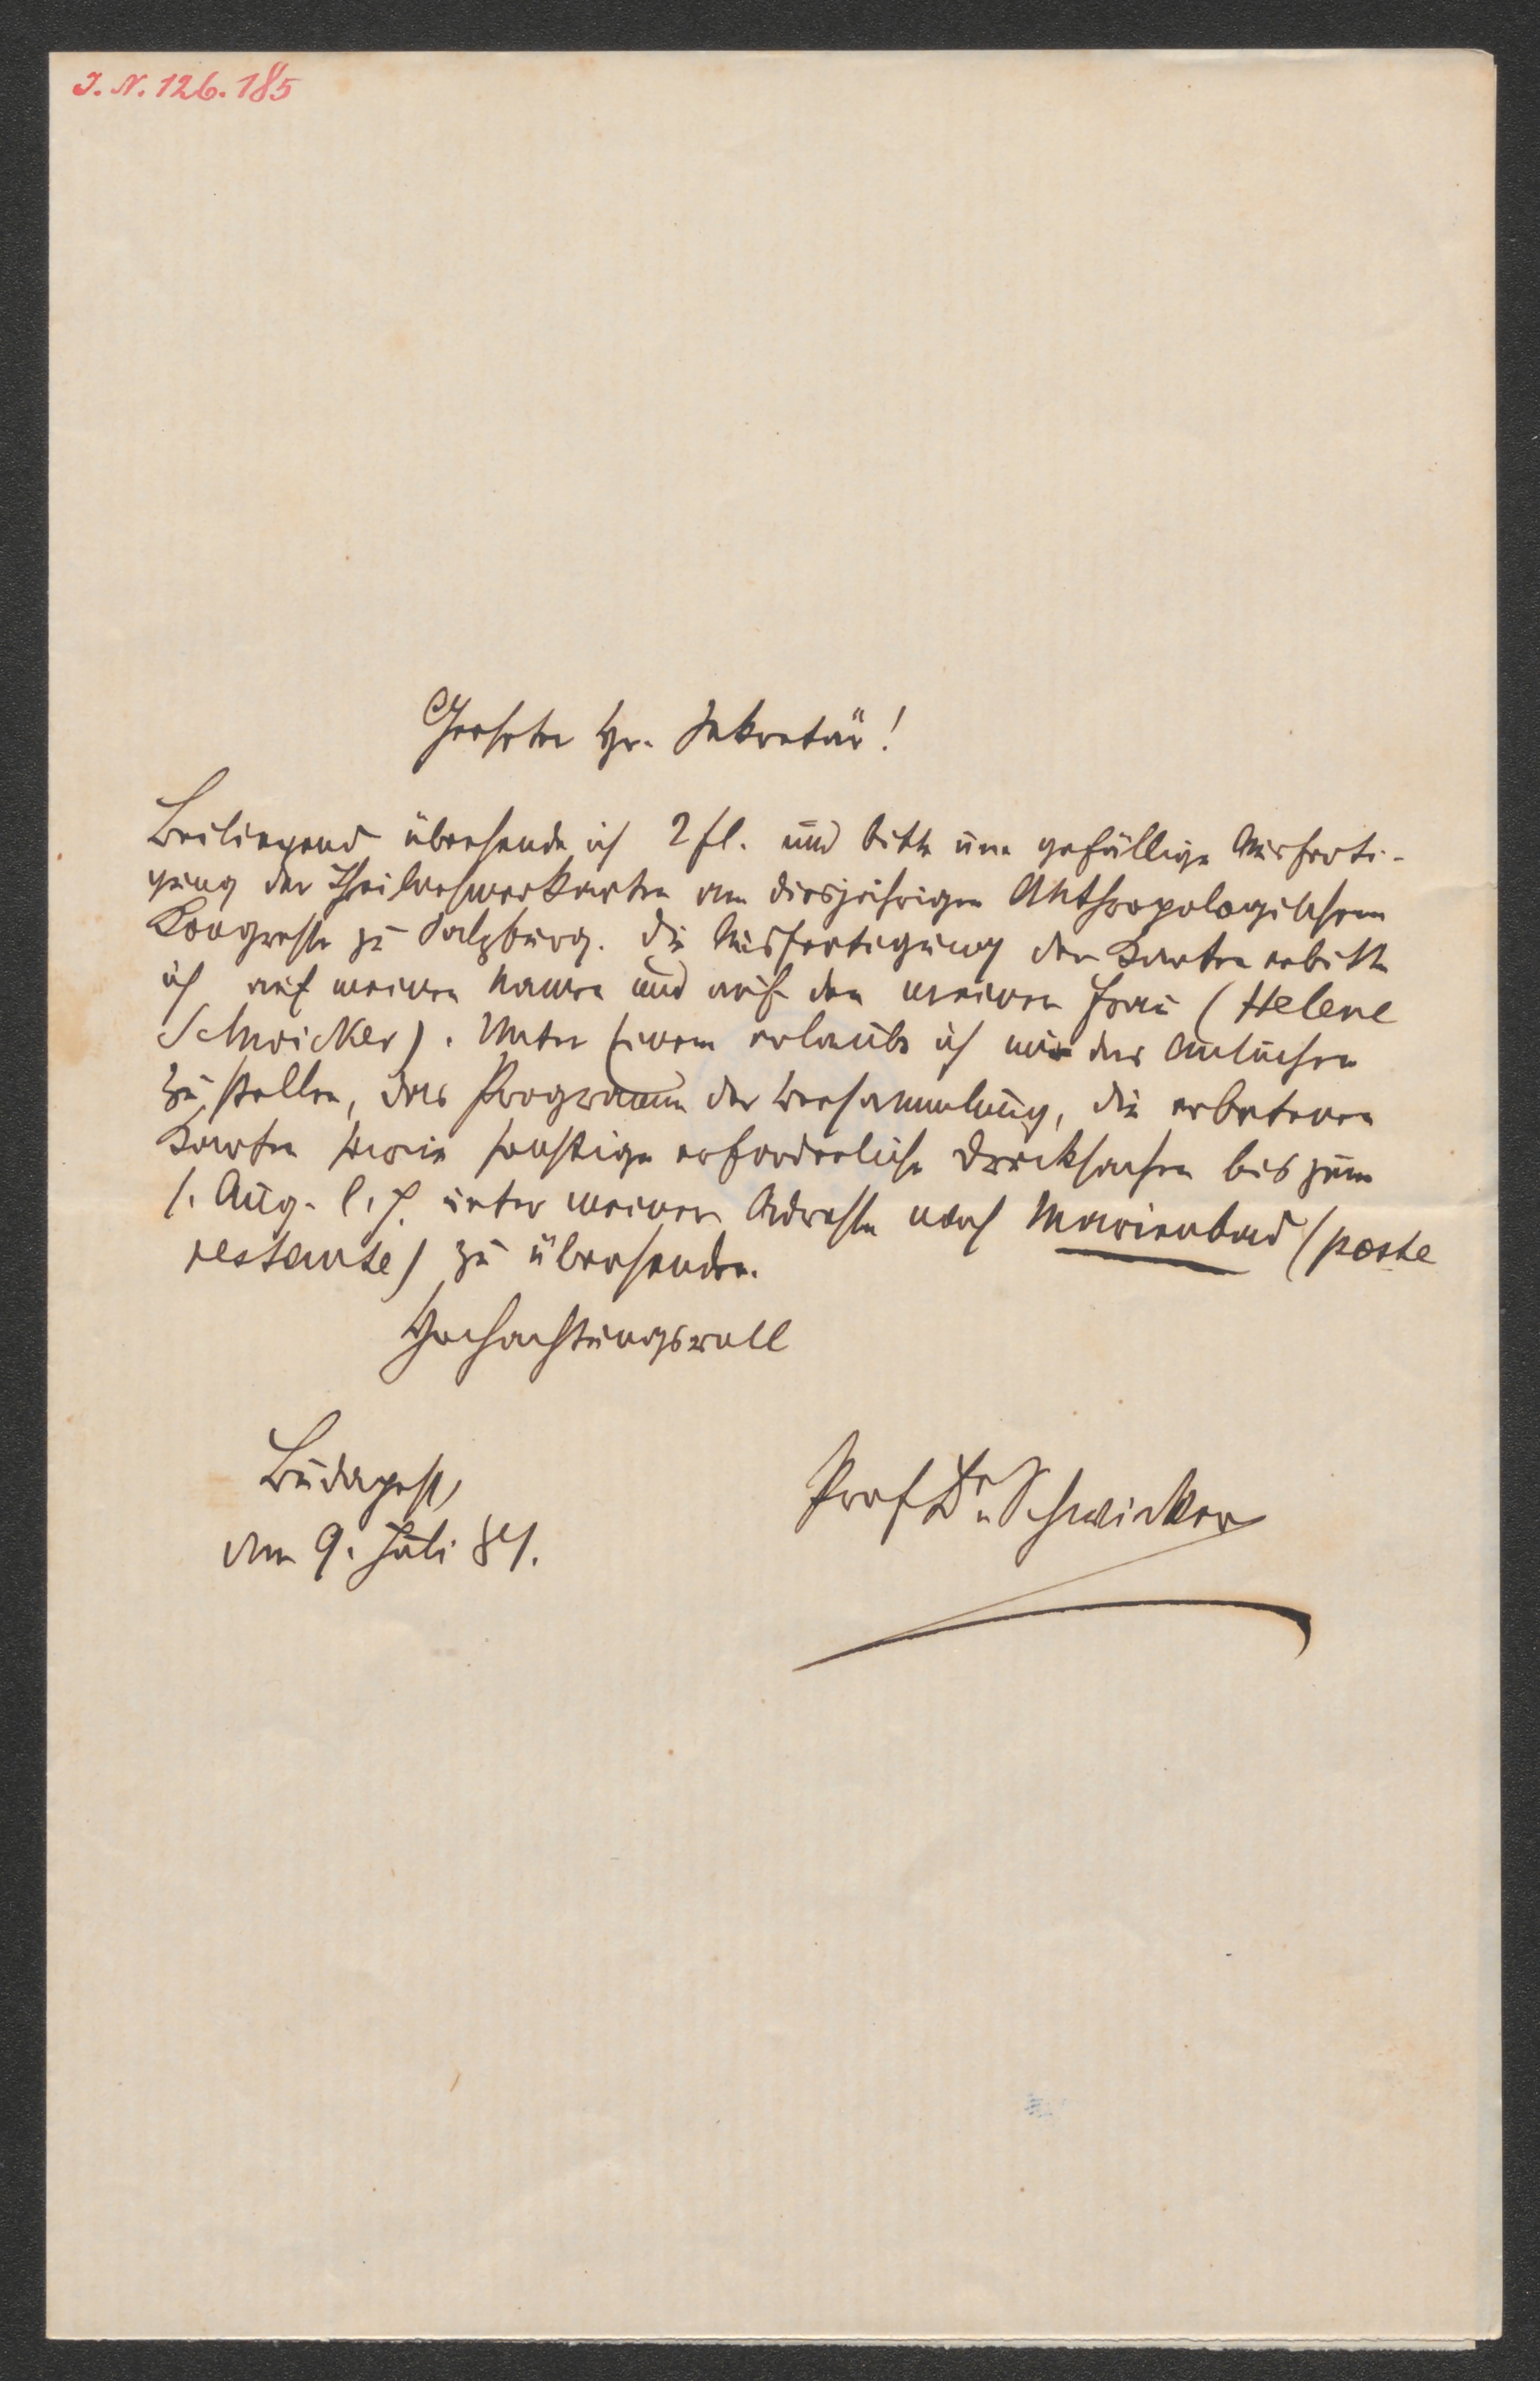 I. N. 126.185
Geehrter Hr. Sekretär!
Beiliegend übersende ich 2 fl. und bitte um gefällige Ausferti-
gung der Theilnehmerkarten am diesjährigen Anthropologischen
Kongresse zu Salzburg. Die Ausfertigung der Karten erbitte
ich auf meinen Namen und auf den meiner Frau (Helene
Schwicker). Unter Einem erlaube ich mir das Ansuchen
zu stellen, das Programm der Versammlung, die erbetenen
Karten sowie sonstige erforderliche Drucksachen bis zum
1. Aug. l. J. unter meiner Adresse nach Marienbad (poste
restante) zu übersenden.
Hochachtungsvoll
Budapest,
am 9. Juli 81.
Prof Dr. Schwicker